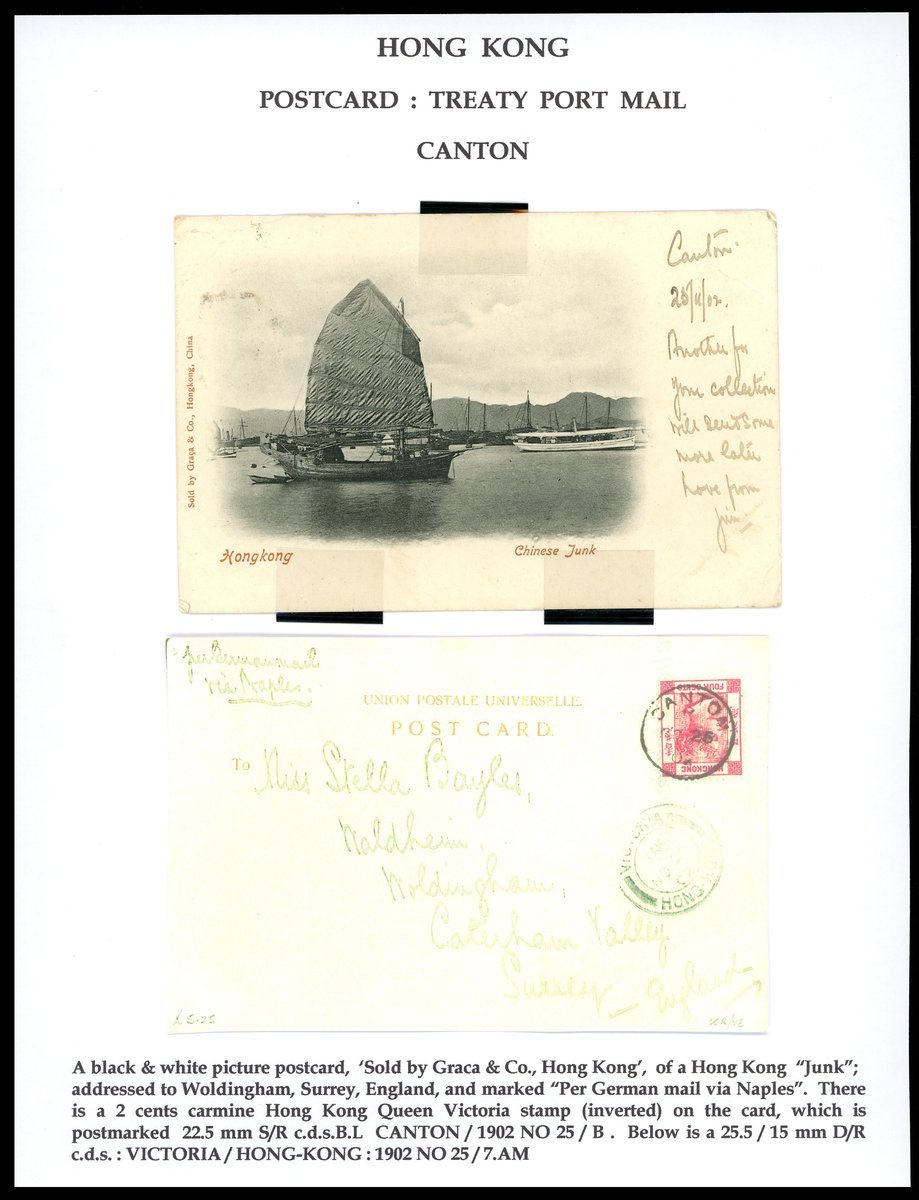 HONG KONG
POSTCARD : TREATY PORT MAIL
CANTON
Canton.
25/11/02.
Another for
your collection
will send some
more later
Love from
Jim
Sold by Graça & Co., Hongkong, China
Hongkong
Chinese Junk
per German mail
via Naples.
UNION POSTALE UNIVERSELLE.
POST CARD.
FOUR CENTS
CANTON
HONGKONG
To Miss Stella Bayles,
Waldheim,
Woldingham,
Caterham Valley
Surrey England
VICTORIA
HONG-KONG
£5.25
A black & white picture postcard, ‘Sold by Graca & Co., Hong Kong’, of a Hong Kong “Junk”;
addressed to Woldingham, Surrey, England, and marked “Per German mail via Naples”. There
is a 2 cents carmine Hong Kong Queen Victoria stamp (inverted) on the card, which is
postmarked 22.5 mm S/R c.d.s.B.L CANTON / 1902 NO 25 / B . Below is a 25.5 / 15 mm D/R
c.d.s. : VICTORIA / HONG-KONG : 1902 NO 25 / 7.AM